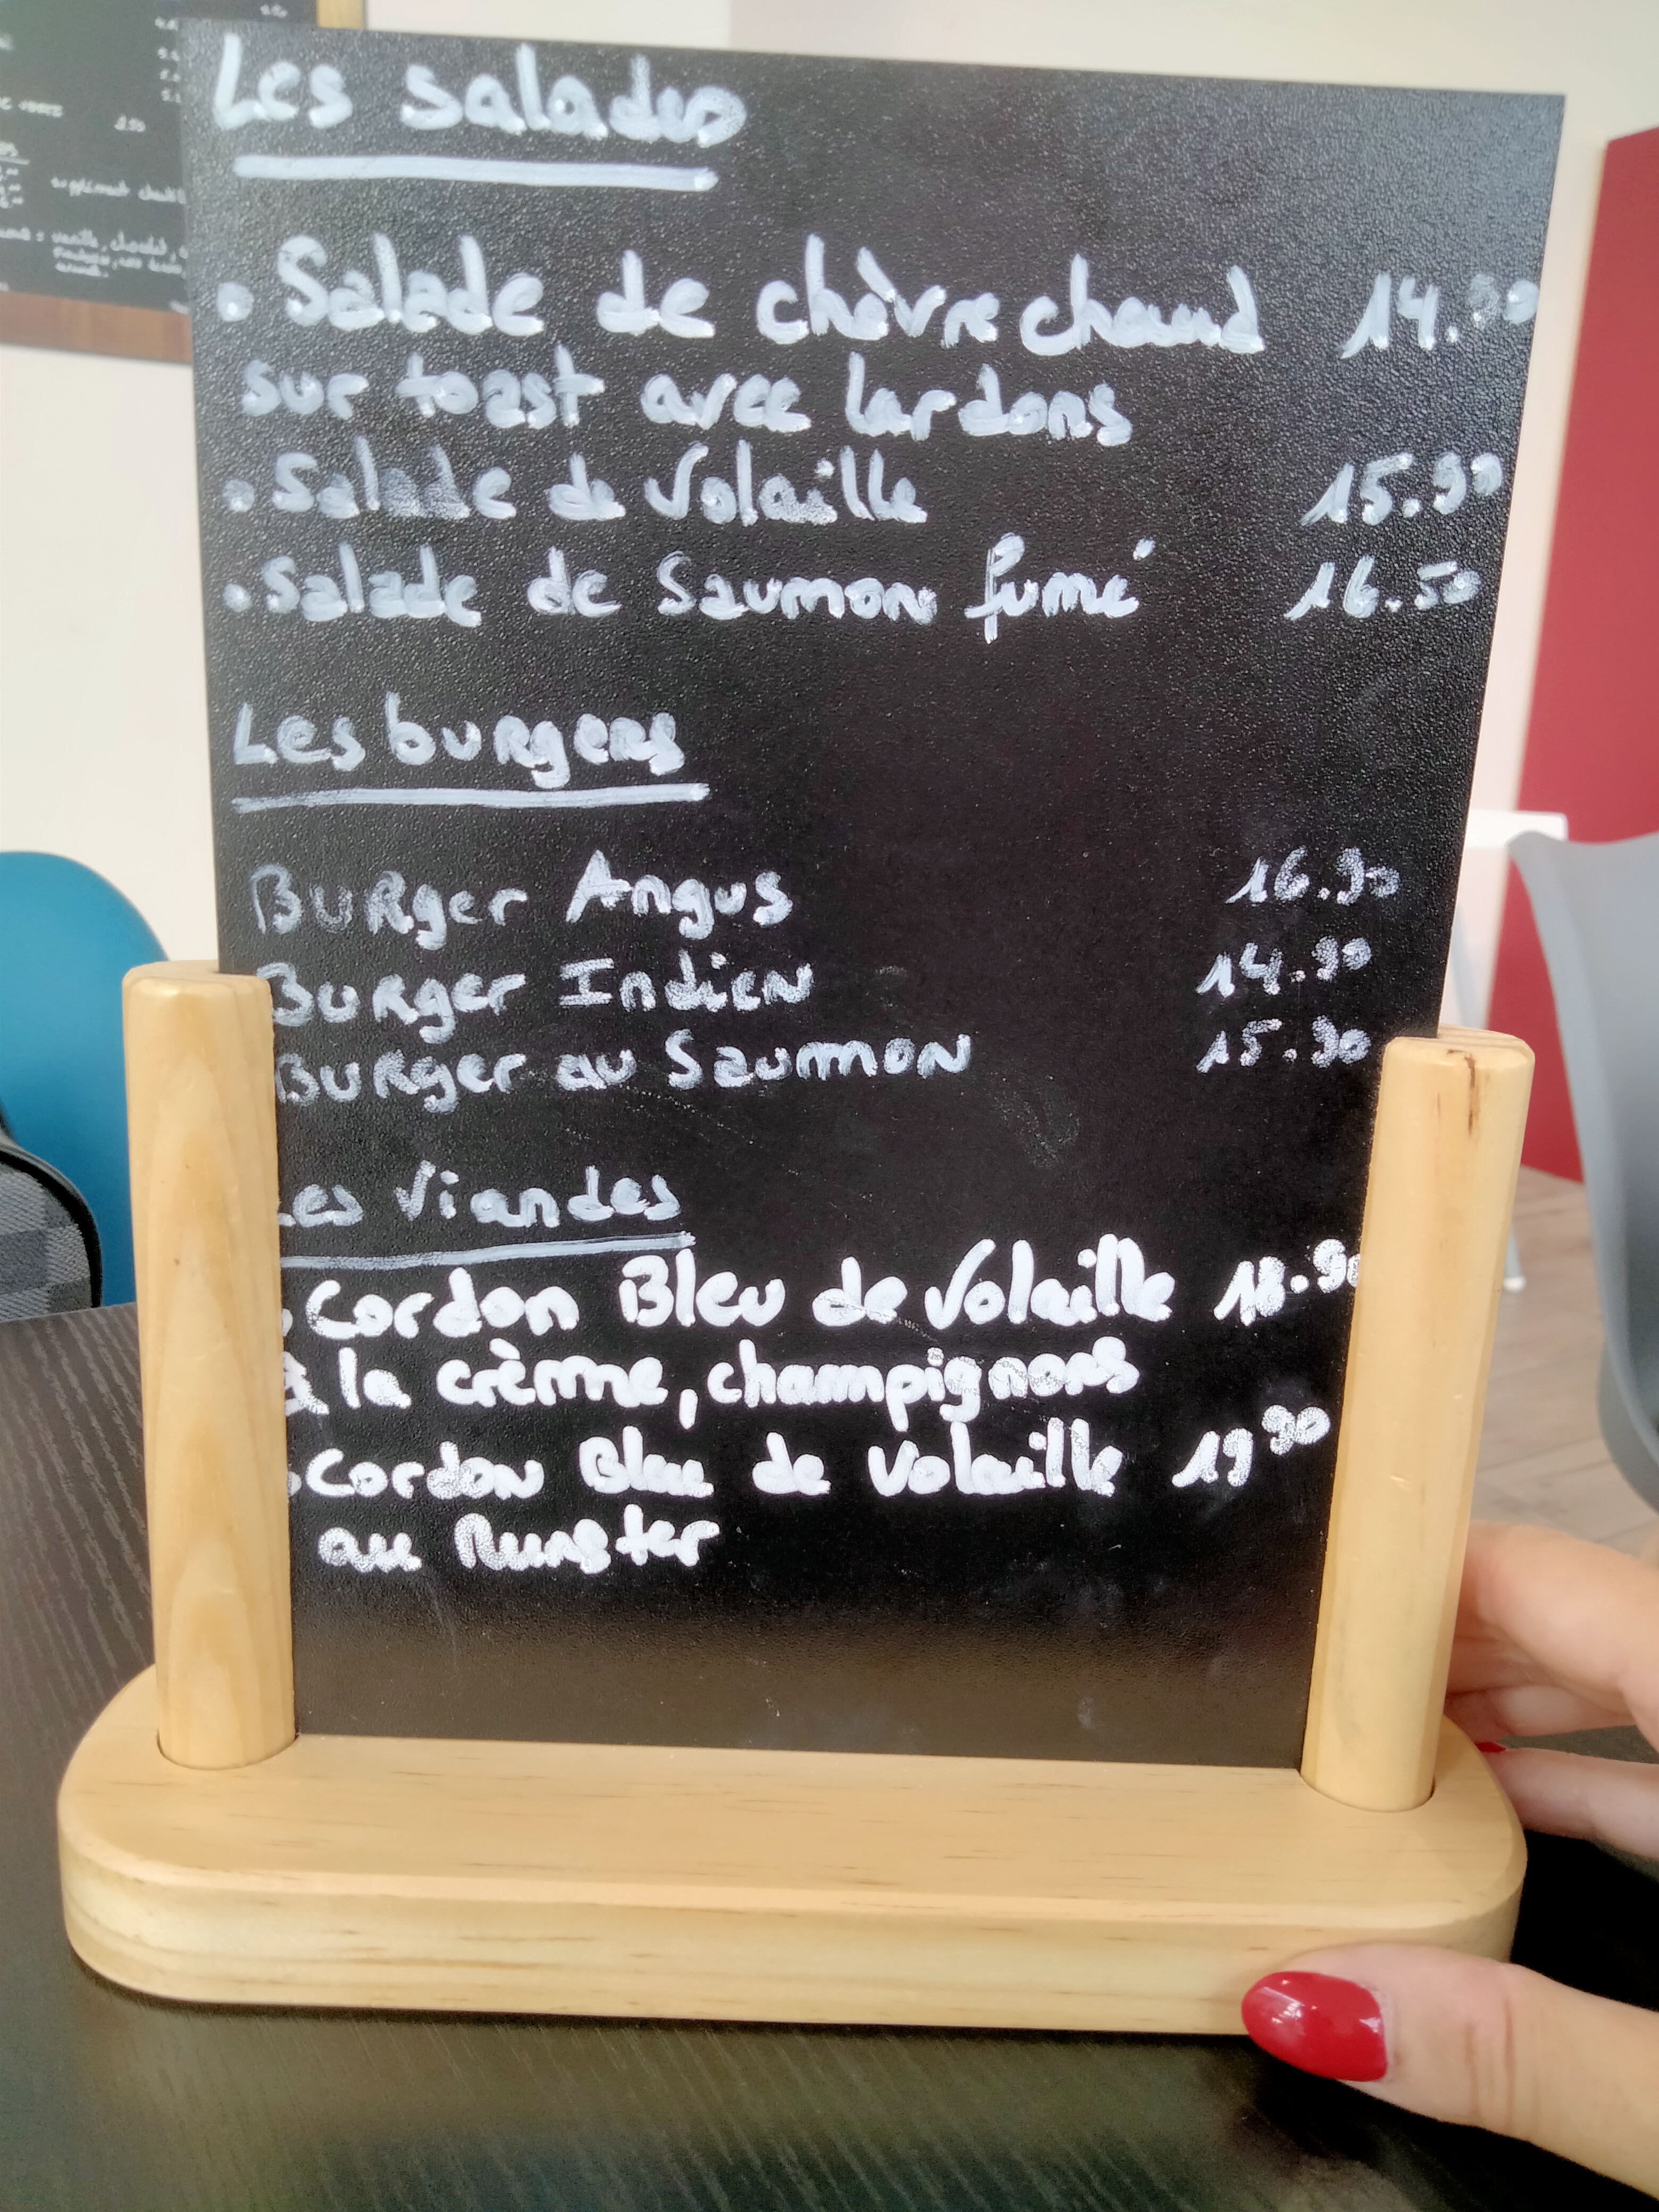 Les salades
• Salade de chèvre chaud 14.90
sur toast avec lardons
• Salade de Volaille 15.90
• Salade de Saumon fumé 16.50
Les burgers
Burger Angus 16.90
Burger Indien 14.90
Burger au Saumon 15.90
Les Viandes
• Cordon Bleu de Volaille 18.90
à la crème, champignons
• Cordon Bleu de Volaille 19 90
au Munster
supplément
vanille, chocolat,